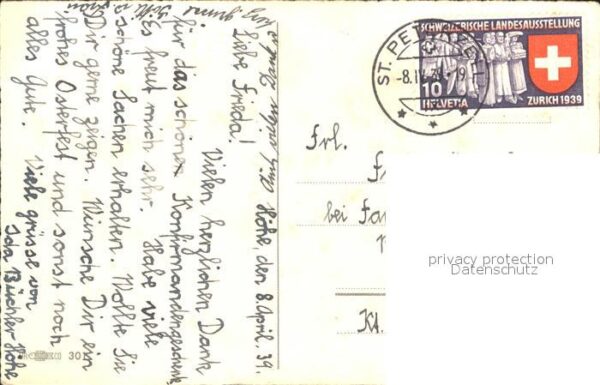 Höhe, den 8. April. 39.
Liebe Frieda!
Vielen herzlichen Dank
für das schöne Konfirmandengeschenk
Es freut mich sehr. Habe viele
schöne Sachen erhalten. Wollte Sie
Dir gerne zeigen. Wünsche Dir ein
frohes Osterfest und sonst noch
alles Gute. Viele grüsse von
Ida Büchler Höhe
SCHWEIZERISCHE LANDESAUSSTELLUNG
10
HELVETIA
ZURICH 1939
ST. PETER
-8.IV.39.-19
Frl.
F
bei Fa
Kt.
privacy protection
Datenschutz
301